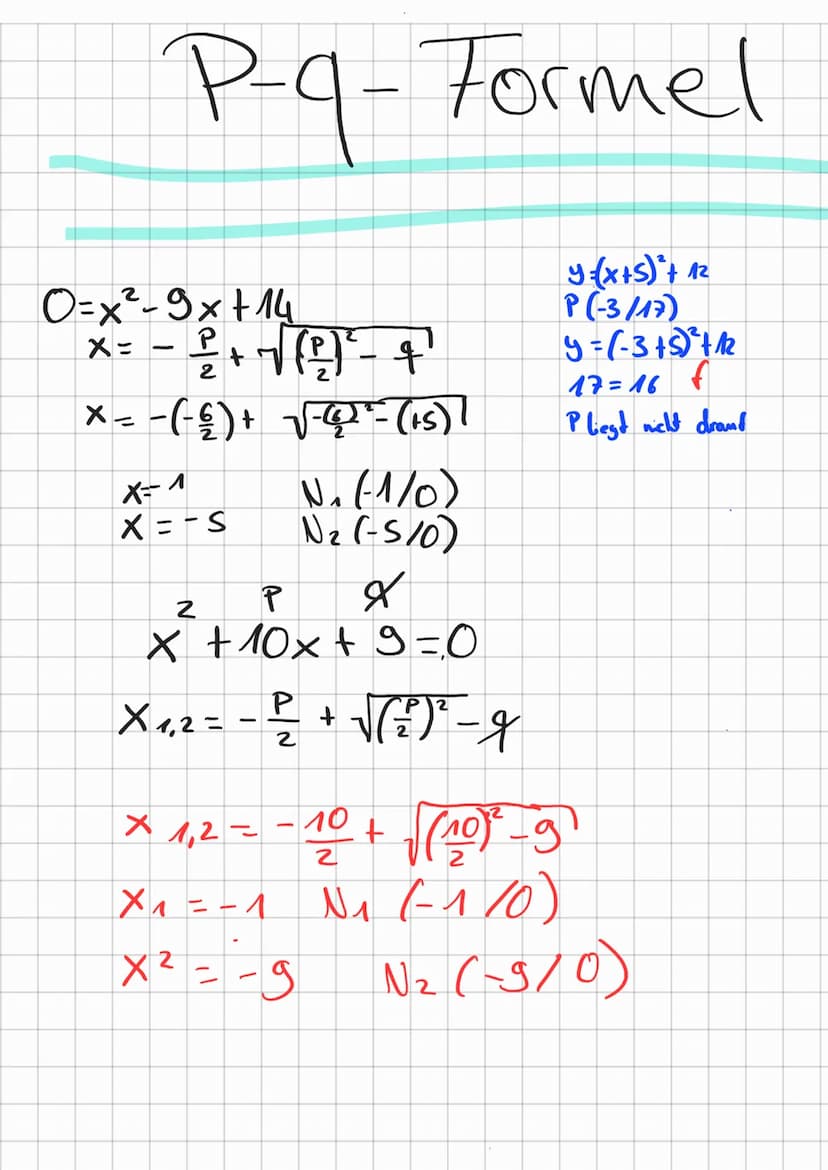 P-q-Formel
0=x²-9x+14
x= - P/2 + √((P/2)² - q)
x = -(-6/2)+ √(-(6/2)² - (+5))
x=-1 N₁ (-1/0)
x = -5 N₂ (-5/0)
y=(x+5)²+ 12
P(-3/17)
y =(-3+5)²+12
17=16 f
P liegt nicht drauf
2 P q
x²+10x+ 9=0
x₁,₂= - P/2 + √((P/2)² - q)
x ₁,₂ = -10/2 + √((10/2)² -9)
x₁ = -1 N₁ (-1/0)
x² = -9 N₂ (-9/0)